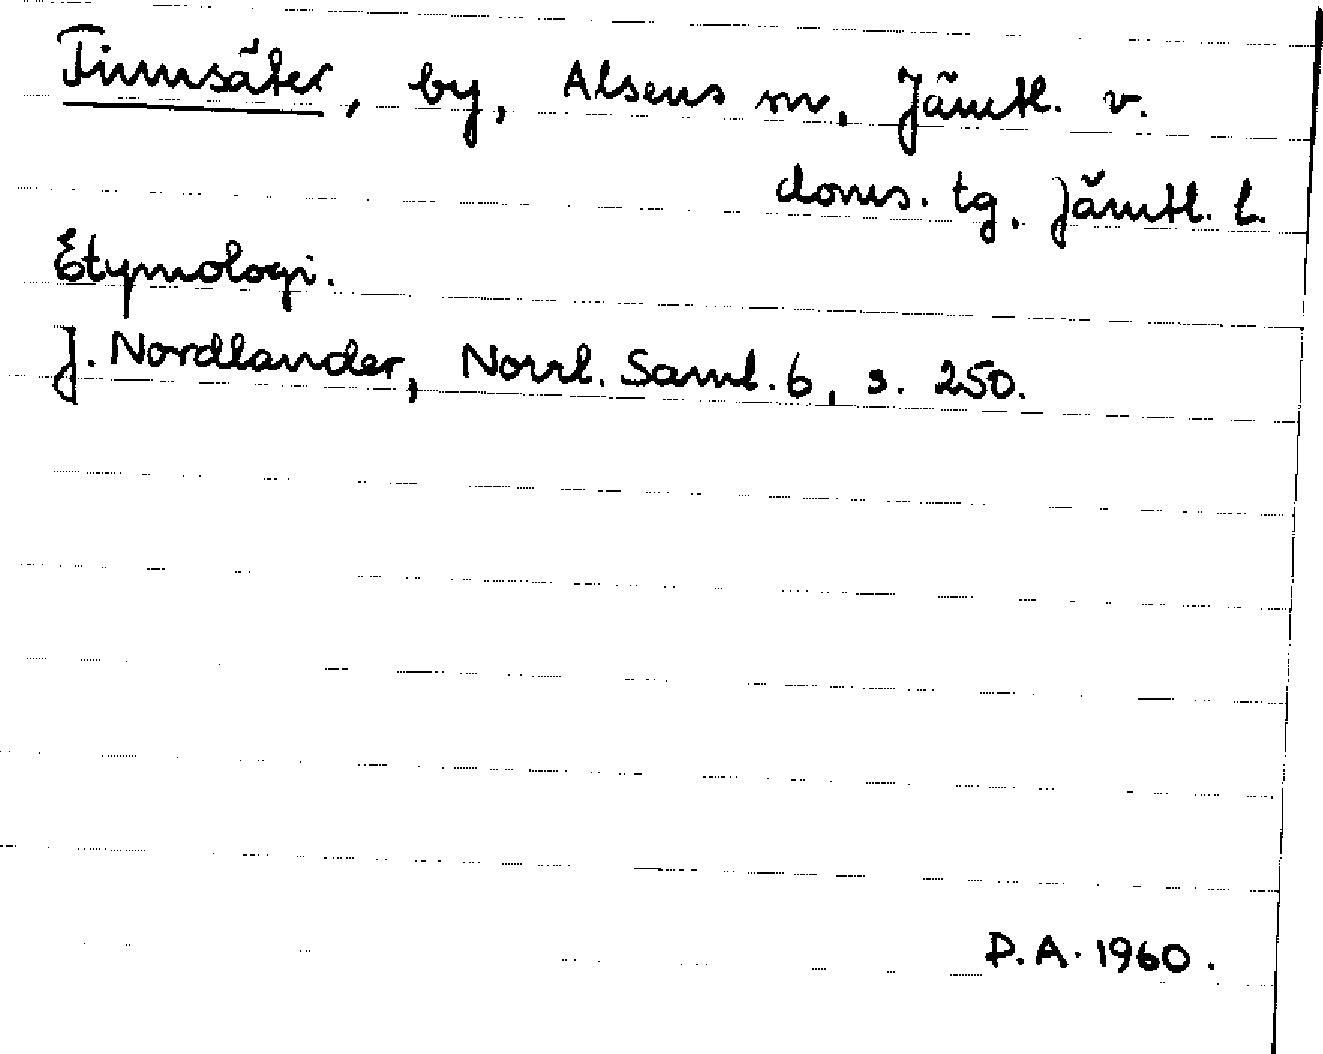 Finnsäter, by, Alsens sn, Jämtl. v.
doms. tg, Jämtl. l.
Etymologi.
J. Nordlander, Norrl. Saml. 6, s. 250.
D.A. 1960.